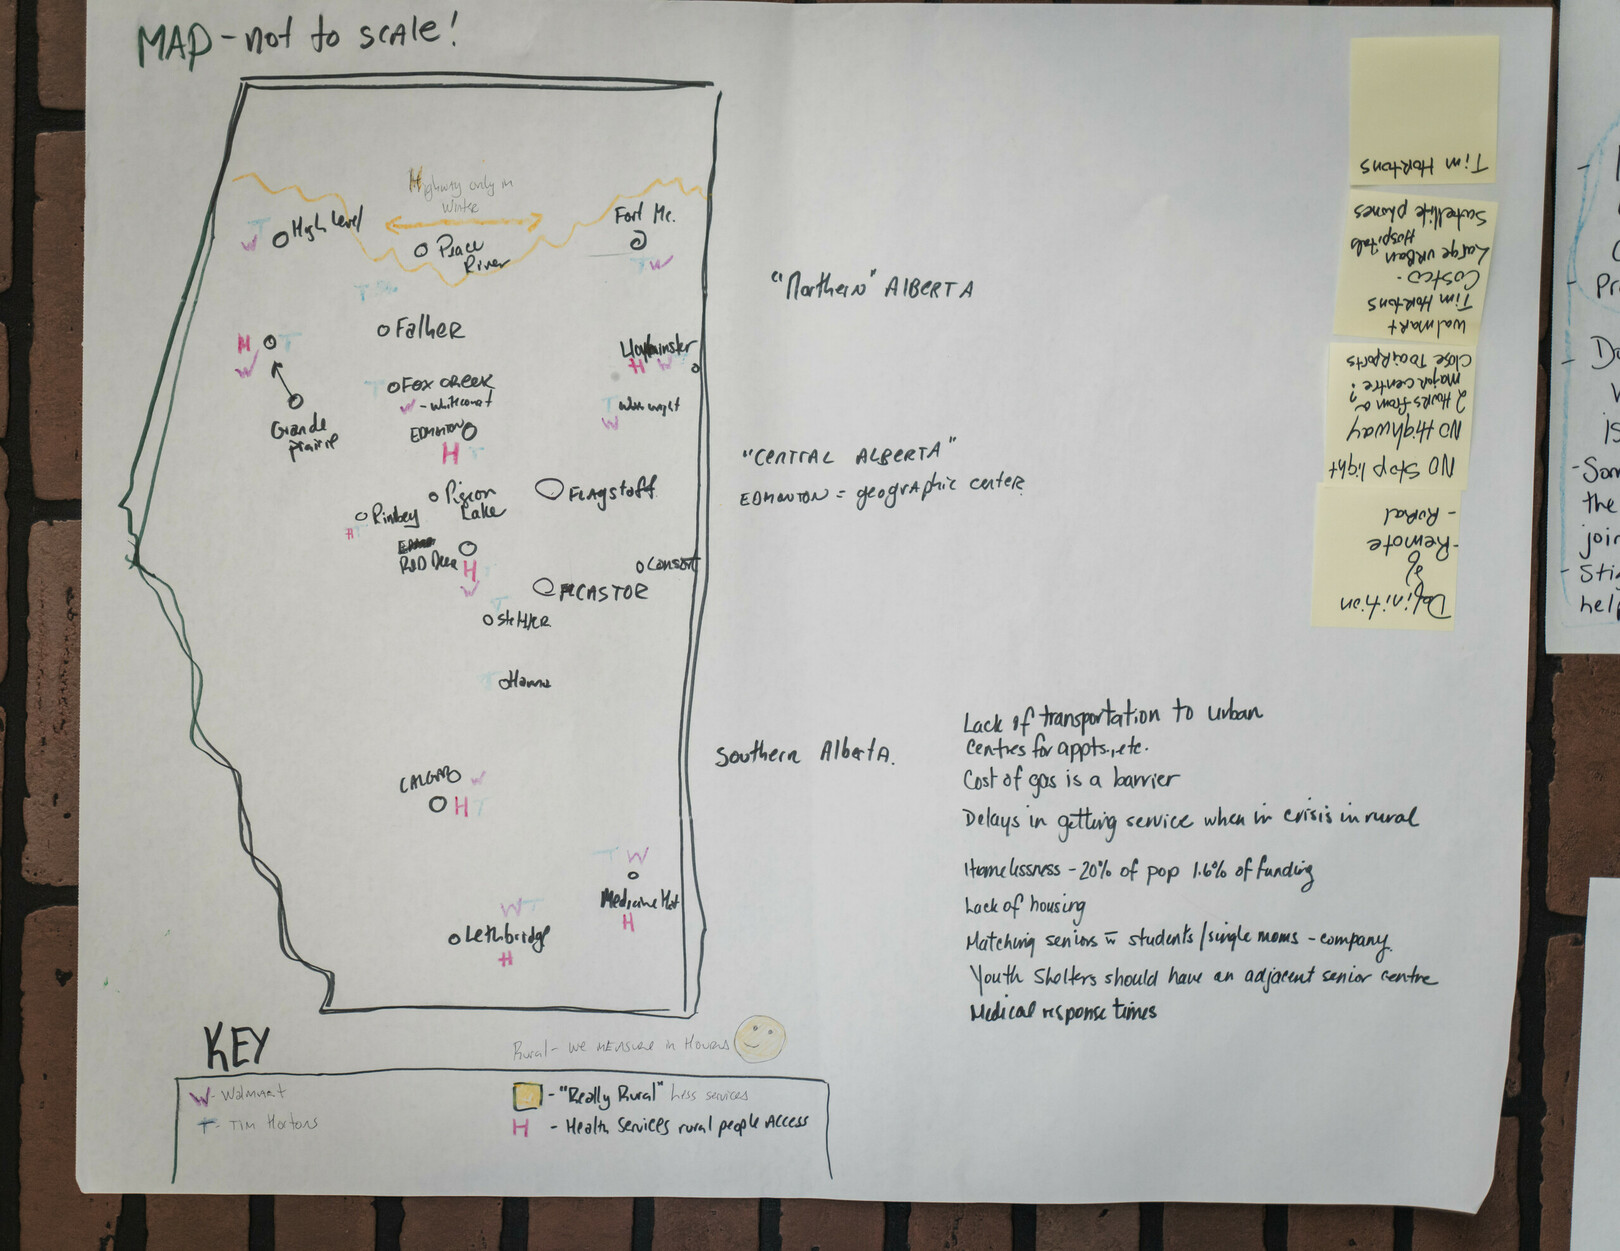 MAP - not to scale!
Highway only in
Winter
T
W
High Level
Peace
River
Fort Mc.
T W
"Northern" ALBERTA
T
Falher
H T
W
Grande
Prairie
Lloydminster
H W
T
Fox Creek
W - Whitecourt
T Wainwright
W
EDMONTON
H T
"CENTRAL ALBERTA"
EDMONTON = geographic center
Pigeon
Lake
FLAGSTAFF
Rimbey
H T
RED Deer
H
W
Consort
CASTOR
T
Stettler
T Hanna
Southern Alberta.
CALGARY W
H T
T W
Medicine Hat
H
W T
Lethbridge
H
Lack of transportation to urban
centres for appts., etc.
Cost of gas is a barrier
Delays in getting service when in crisis in rural
Homelessness - 20% of pop 1.6% of funding
Lack of housing
Matching seniors w students/single moms - company.
Youth Shelters should have an adjacent senior centre
Medical response times
KEY
Rural - we MEASURE in Hours
W - Walmart
T - Tim Hortons
- "Really Rural" Less services
H - Health Services rural people Access
Definition
of
- Remote
- Rural
NO Stop light
NO Highway
2 Hours from a
major centre?
Close to airports
Walmart
Tim Hortons
Costco -
Large urban
Hospitals
Satellite phones
Tim Hortons
- Som
the
join
- Sti
help